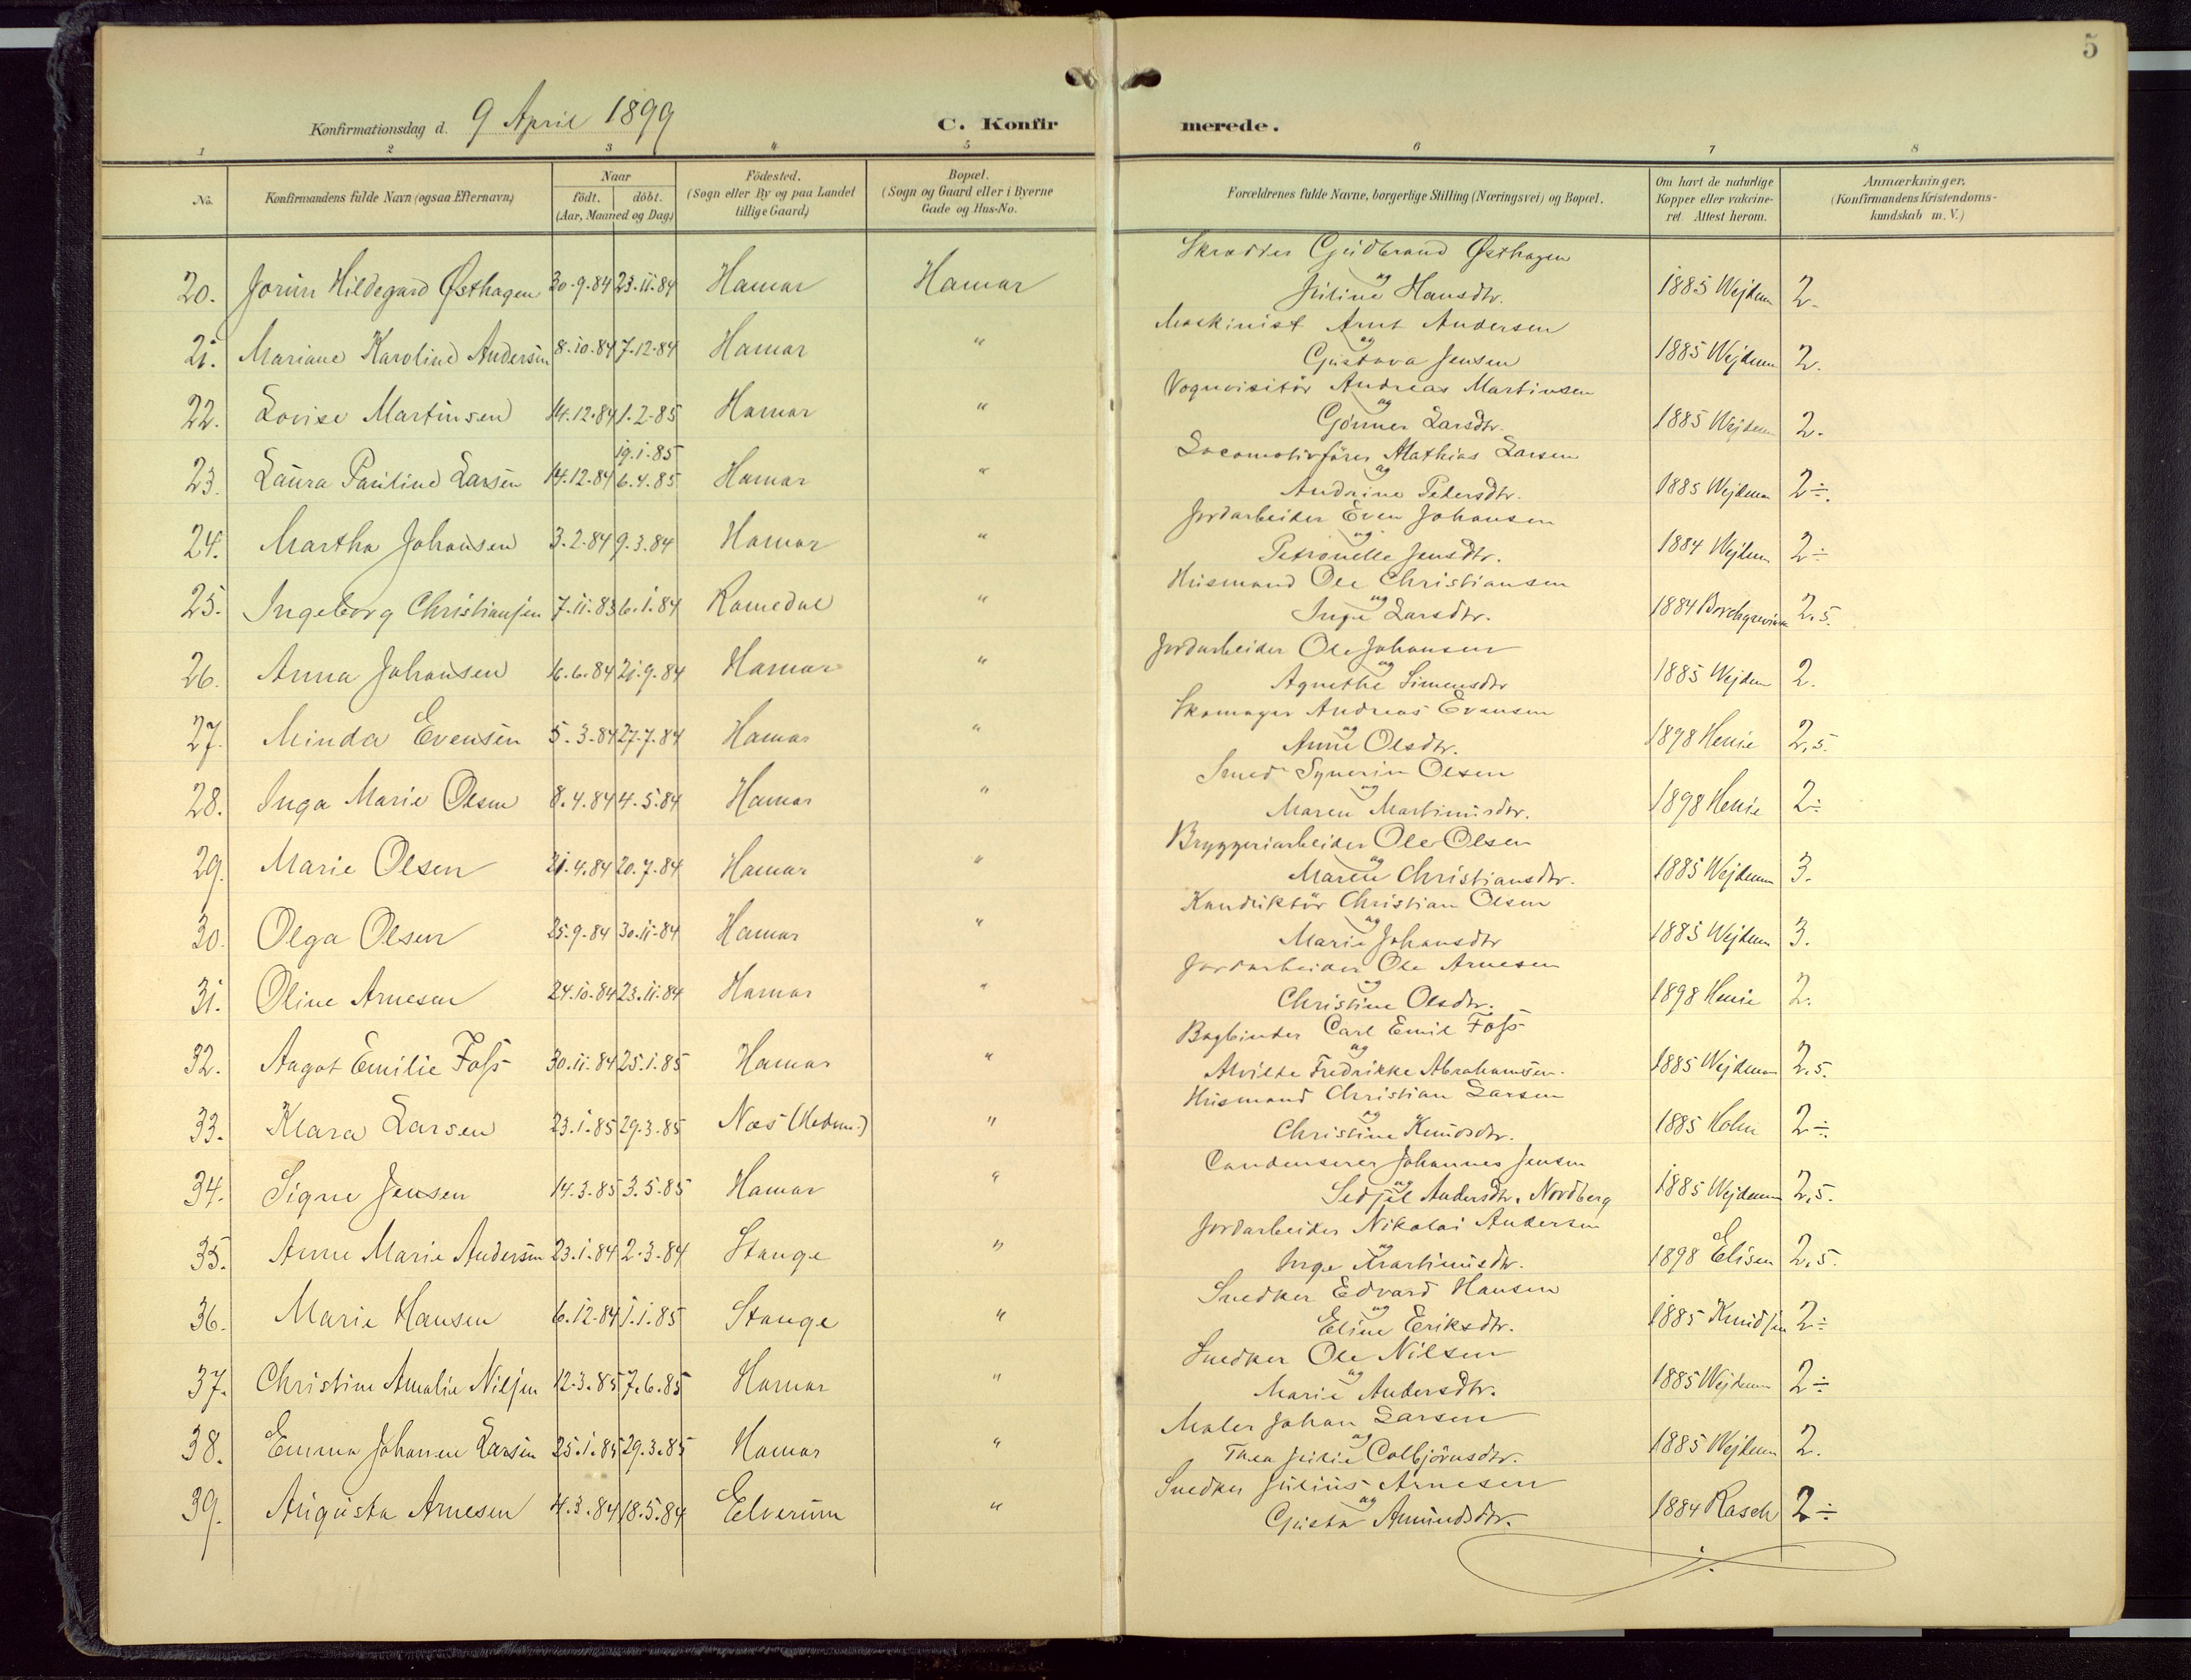 5
Konfirmationsdag d. 9 April 1899 C. Konfirmerede.
1 2 3 4 5 6 7 8
No. Konfirmandens fulde Navn (ogsaa Efternavn) Naar födt. döbt. (Aar, Maaned og Dag) Födested. (Sogn eller By og paa Landet tillige Gaard) Bopæl. (Sogn og Gaard eller i Byerne Gade og Hus-No. Forældrenes fulde Navne, borgerlige Stilling (Næringsvei) og Bopæl. Om havt de naturlige Kopper eller vakcineret Attest herom. Anmærkninger. (Konfirmandens Kristendomskundskab m. V.)
20. Jorun Hildegard Østhagen 30.9.84 23.11.84 Hamar Hamar Skrædder Gudbrand Østhagen og Juline Hansdtr. 1885 Wejdem 2.
21. Mariane Karoline Andersen 8.10.84 7.12.84 Hamar " Maskinist Arnt Andersen og Gustava Jensen 1885 Wejdem 2.
22. Lovise Martinsen 14.12.84 1.2.85 Hamar " Vognvisitör Andreas Martinsen og Gönner Larsdtr. 1885 Wejdem 2.
23. Laura Pauline Larsen 14.12.84 19.1.85 6.4.85 Hamar " Locomotivförer Mathias Larsen og Andrine Pedersdtr. 1885 Wejdem 2÷.
24. Martha Johansen 3.2.84 9.3.84 Hamar " Jordarbeider Even Johansen og Petronelle Jensdtr. 1884 Wejdem 2÷
25. Ingeborg Christiansen 7.11.83 6.1.84 Romedal " Husmand Ole Christiansen og Inge Larsdtr. 1884 Borchgrevink 2,5.
26. Anna Johansen 16.6.84 21.9.84 Hamar " Jordarbeider Ole Johansen og Agnethe Simensdtr 1885 Wejdem 2.
27. Minda Evensen 5.3.84 27.7.84 Hamar " Skomager Andreas Evensen og Anne Olsdtr. 1898 Henie 2,5.
28. Inga Marie Olsen 8.4.84 4.5.84 Hamar " Smed Syverin Olsen og Maren Martinusdtr. 1898 Henie 2÷
29. Marie Olsen 21.4.84 20.7.84 Hamar " Bryggeriarbeider Ole Olsen og Maren Christiansdtr. 1885 Wejdem 3.
30. Olga Olsen 25.9.84 30.11.84 Hamar " Konduktör Christian Olsen og Marie Johansdtr 1885 Wejdem 3.
31. Oline Arnesen 24.10.84 23.11.84 Hamar " Jordarbeider Ole Arnesen og Christine Olsdtr. 1898 Henie 2.
32. Aagot Emilie Foss 30.11.84 25.1.85 Hamar " Bogbinder Carl Emil Foss og Alvilde Fredrikke Abrahamsen. 1885 Wejdem 2,5.
33. Klara Larsen 23.1.85 29.3.85 Næs (Hedm.) " Husmand Christian Larsen og Christine Knudsdtr. 1885 Holm 2÷.
34. Signe Jensen 14.3.85 3.5.85 Hamar " Condenserer Johannes Jensen og Sedsel Andersdtr. Nordberg 1885 Wejdem 2,5.
35. Anne Marie Andersen 23.1.84 2.3.84 Stange " Jordarbeider Nikolai Andersen og Inge Martinusdtr. 1898 Elisen 2,5.
36. Marie Hansen 6.12.84 1.1.85 Stange " Snedker Edvard Hansen og Eline Eriksdtr. 1885 Knudsen 2÷
37. Christine Amalie Nilsen 12.3.85 7.6.85 Hamar " Snedker Ole Nilsen og Marie Andersdtr. 1885 Wejdem 2÷
38. Emma Johanne Larsen 25.1.85 29.3.85 Hamar " Maler Johan Larsen og Thea Julie Colbjörnsdtr. 1885 Wejdem 2.
39. Augusta Arnesen 4.3.84 18.5.84 Elverum " Snedker Julius Arnesen og Gusta Amundsdtr. 1884 Rasch 2÷